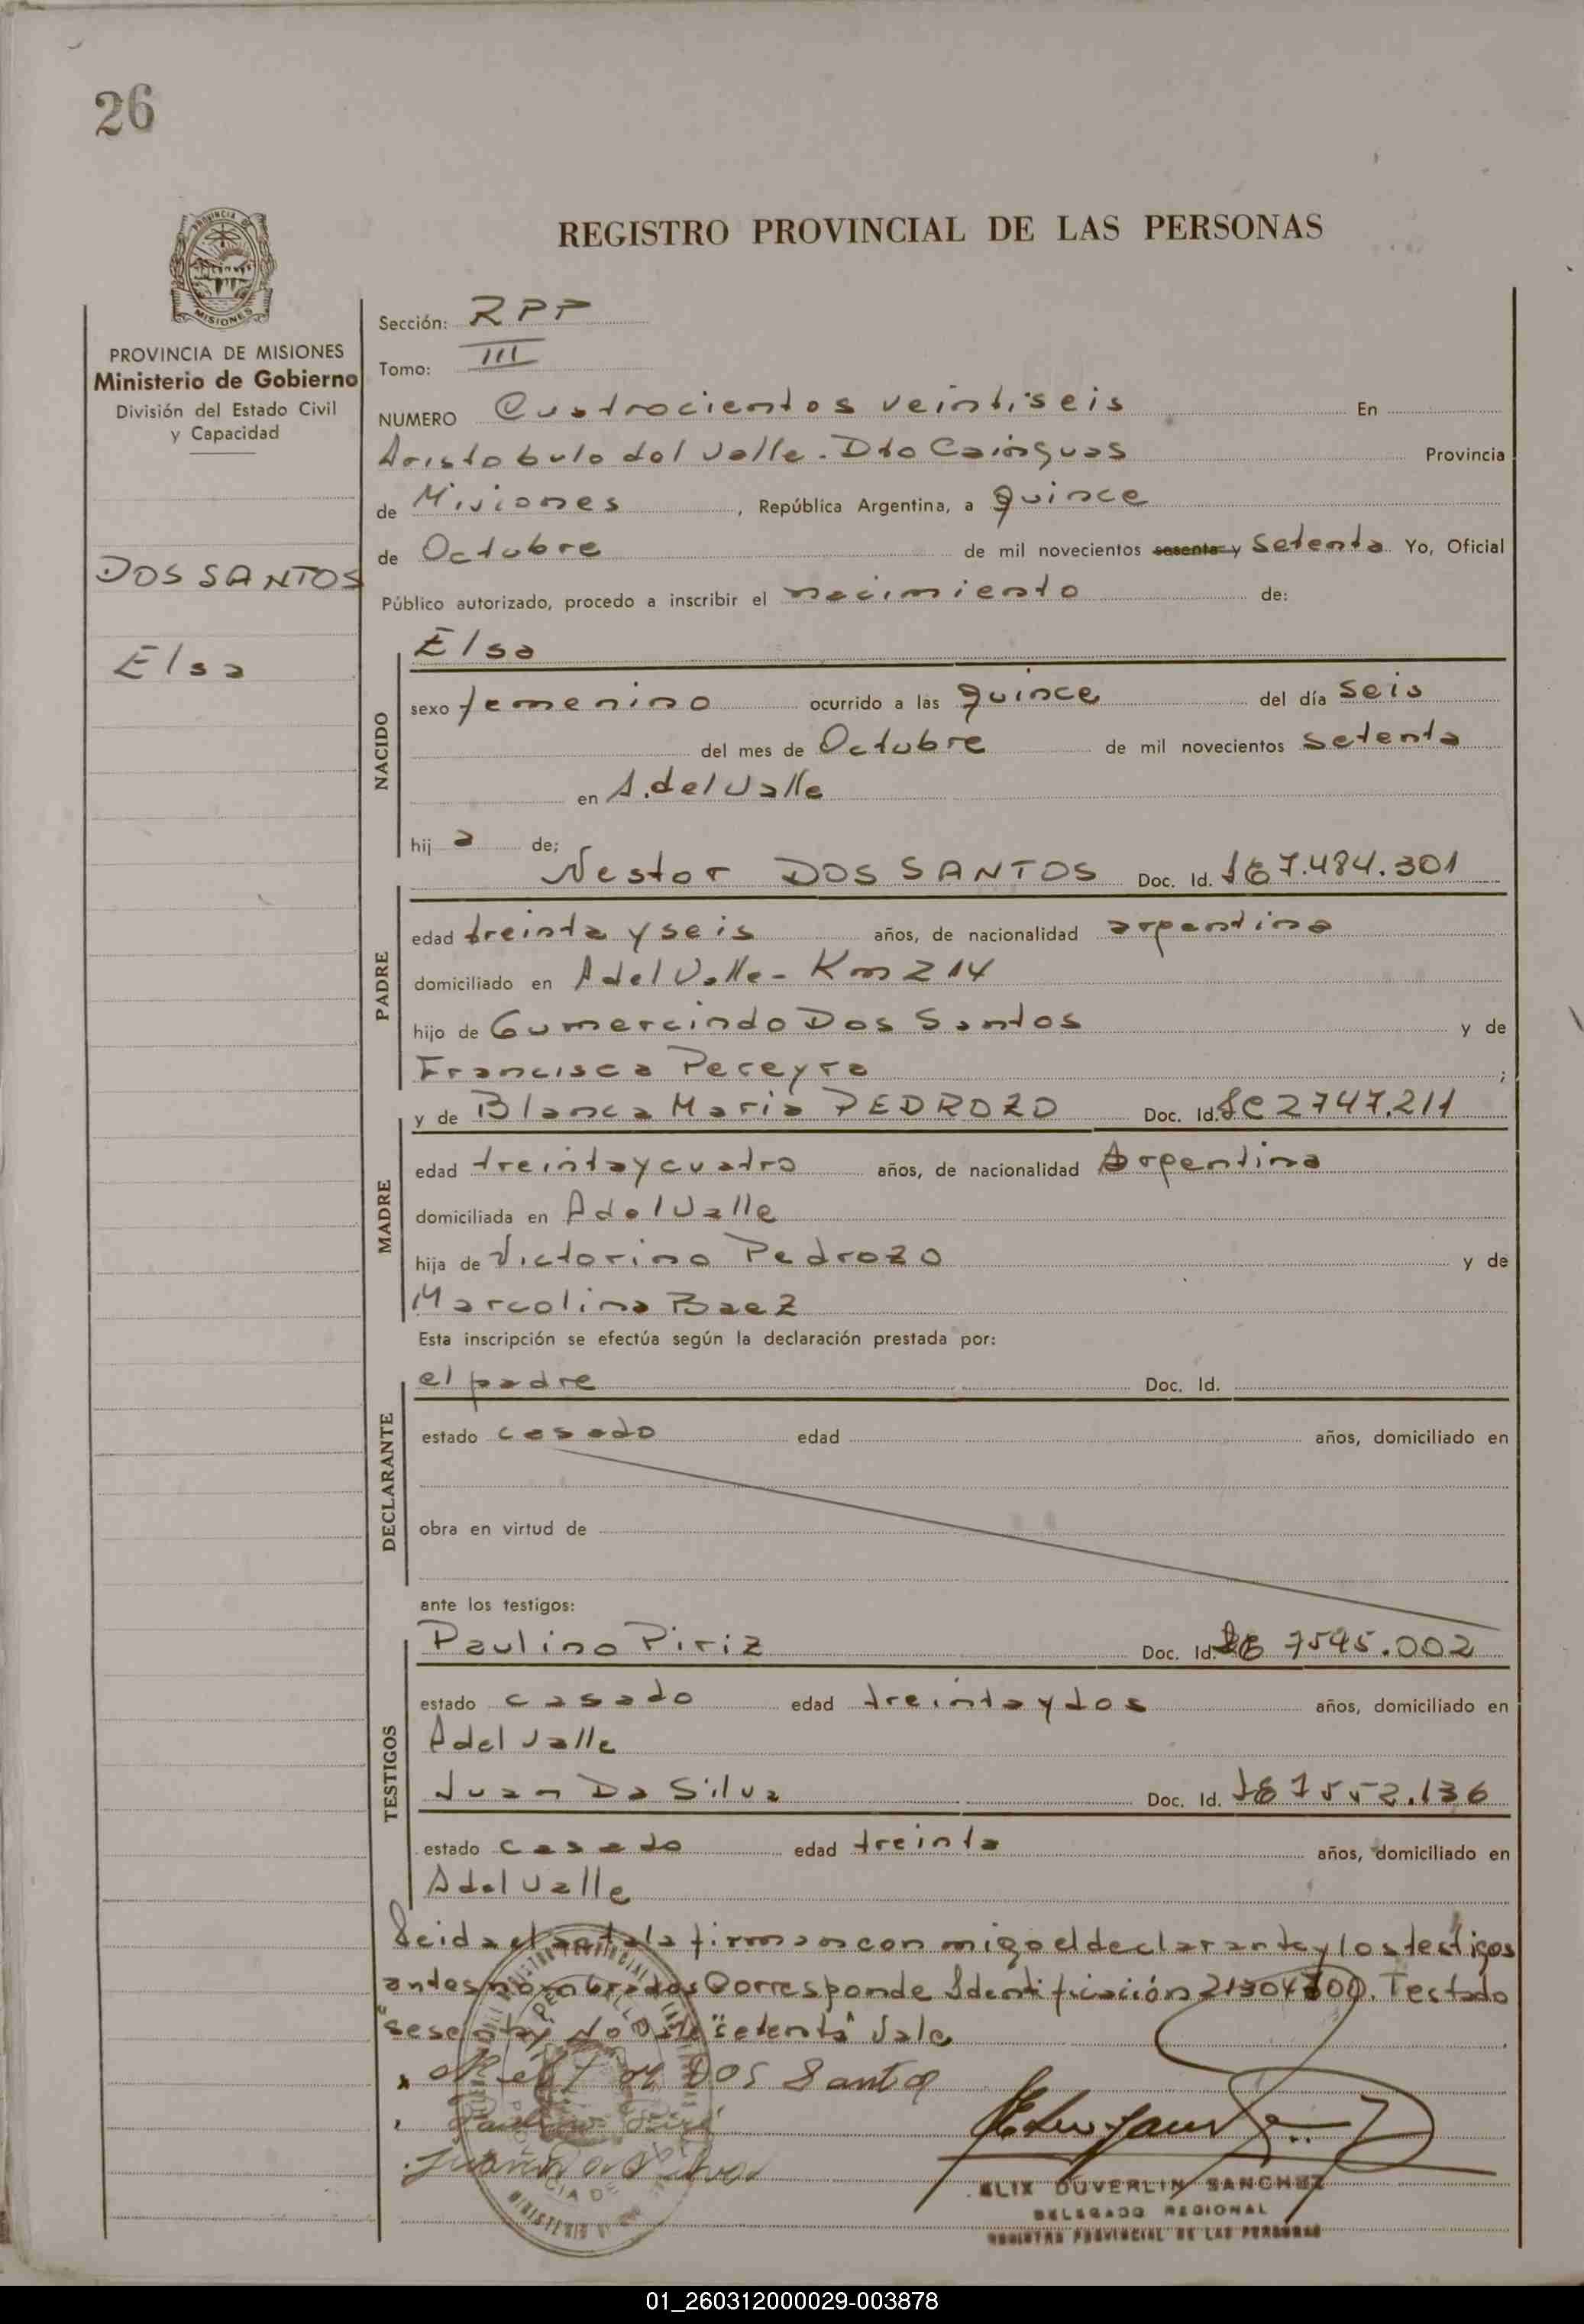 26
REGISTRO PROVINCIAL DE LAS PERSONAS
PROVINCIA DE
MISIONES
PROVINCIA DE MISIONES
Ministerio de Gobierno
División del Estado Civil
y Capacidad
DOS SANTOS
Elsa
Sección: RPP
Tomo: III
NUMERO Cuatrocientos veintiseis En
Aristobulo del Valle. Dto Cainguas Provincia
de Misiones, República Argentina, a quince
de Octubre de mil novecientos sesenta y Setenta Yo, Oficial
Público autorizado, procedo a inscribir el nacimiento de:
NACIDO
Elsa
sexo femenino ocurrido a las quince del día seis
del mes de Octubre de mil novecientos setenta
en A. del Valle
hij a de;
PADRE
Nestor DOS SANTOS Doc. Id. 7.484.301
edad treinta y seis años, de nacionalidad argentina
domiciliado en A del Valle - Km 214
hijo de Gumercindo Dos Santos y de
Francisca Pereyra ;
MADRE
y de Blanca Maria PEDROZO Doc. Id. LC 2747.211
edad treinta y cuatro años, de nacionalidad Argentina
domiciliada en A del Valle
hija de Victorino Pedrozo y de
Marcolina Baez
Esta inscripción se efectúa según la declaración prestada por:
DECLARANTE
el padre Doc. Id.
estado casado edad años, domiciliado en
obra en virtud de
ante los testigos:
TESTIGOS
Paulino Piriz Doc. Id. 7545.002
estado casado edad treinta y dos años, domiciliado en
A del Valle
Juan Da Silva Doc. Id. 7552.136
estado casado edad treinta años, domiciliado en
A del Valle
Leida el acta la firman con migo el declarante y los testigos
antes nombrados Corresponde Identificación Testado
"sesenta y" No Vale "setenta" Vale
Nestor DOS Santos
Juan Da Silva
ELIX DUVERLIN SANCHEZ
DELEGADO REGIONAL
REGISTRO PROVINCIAL DE LAS PERSONAS
01_260312000029-003878